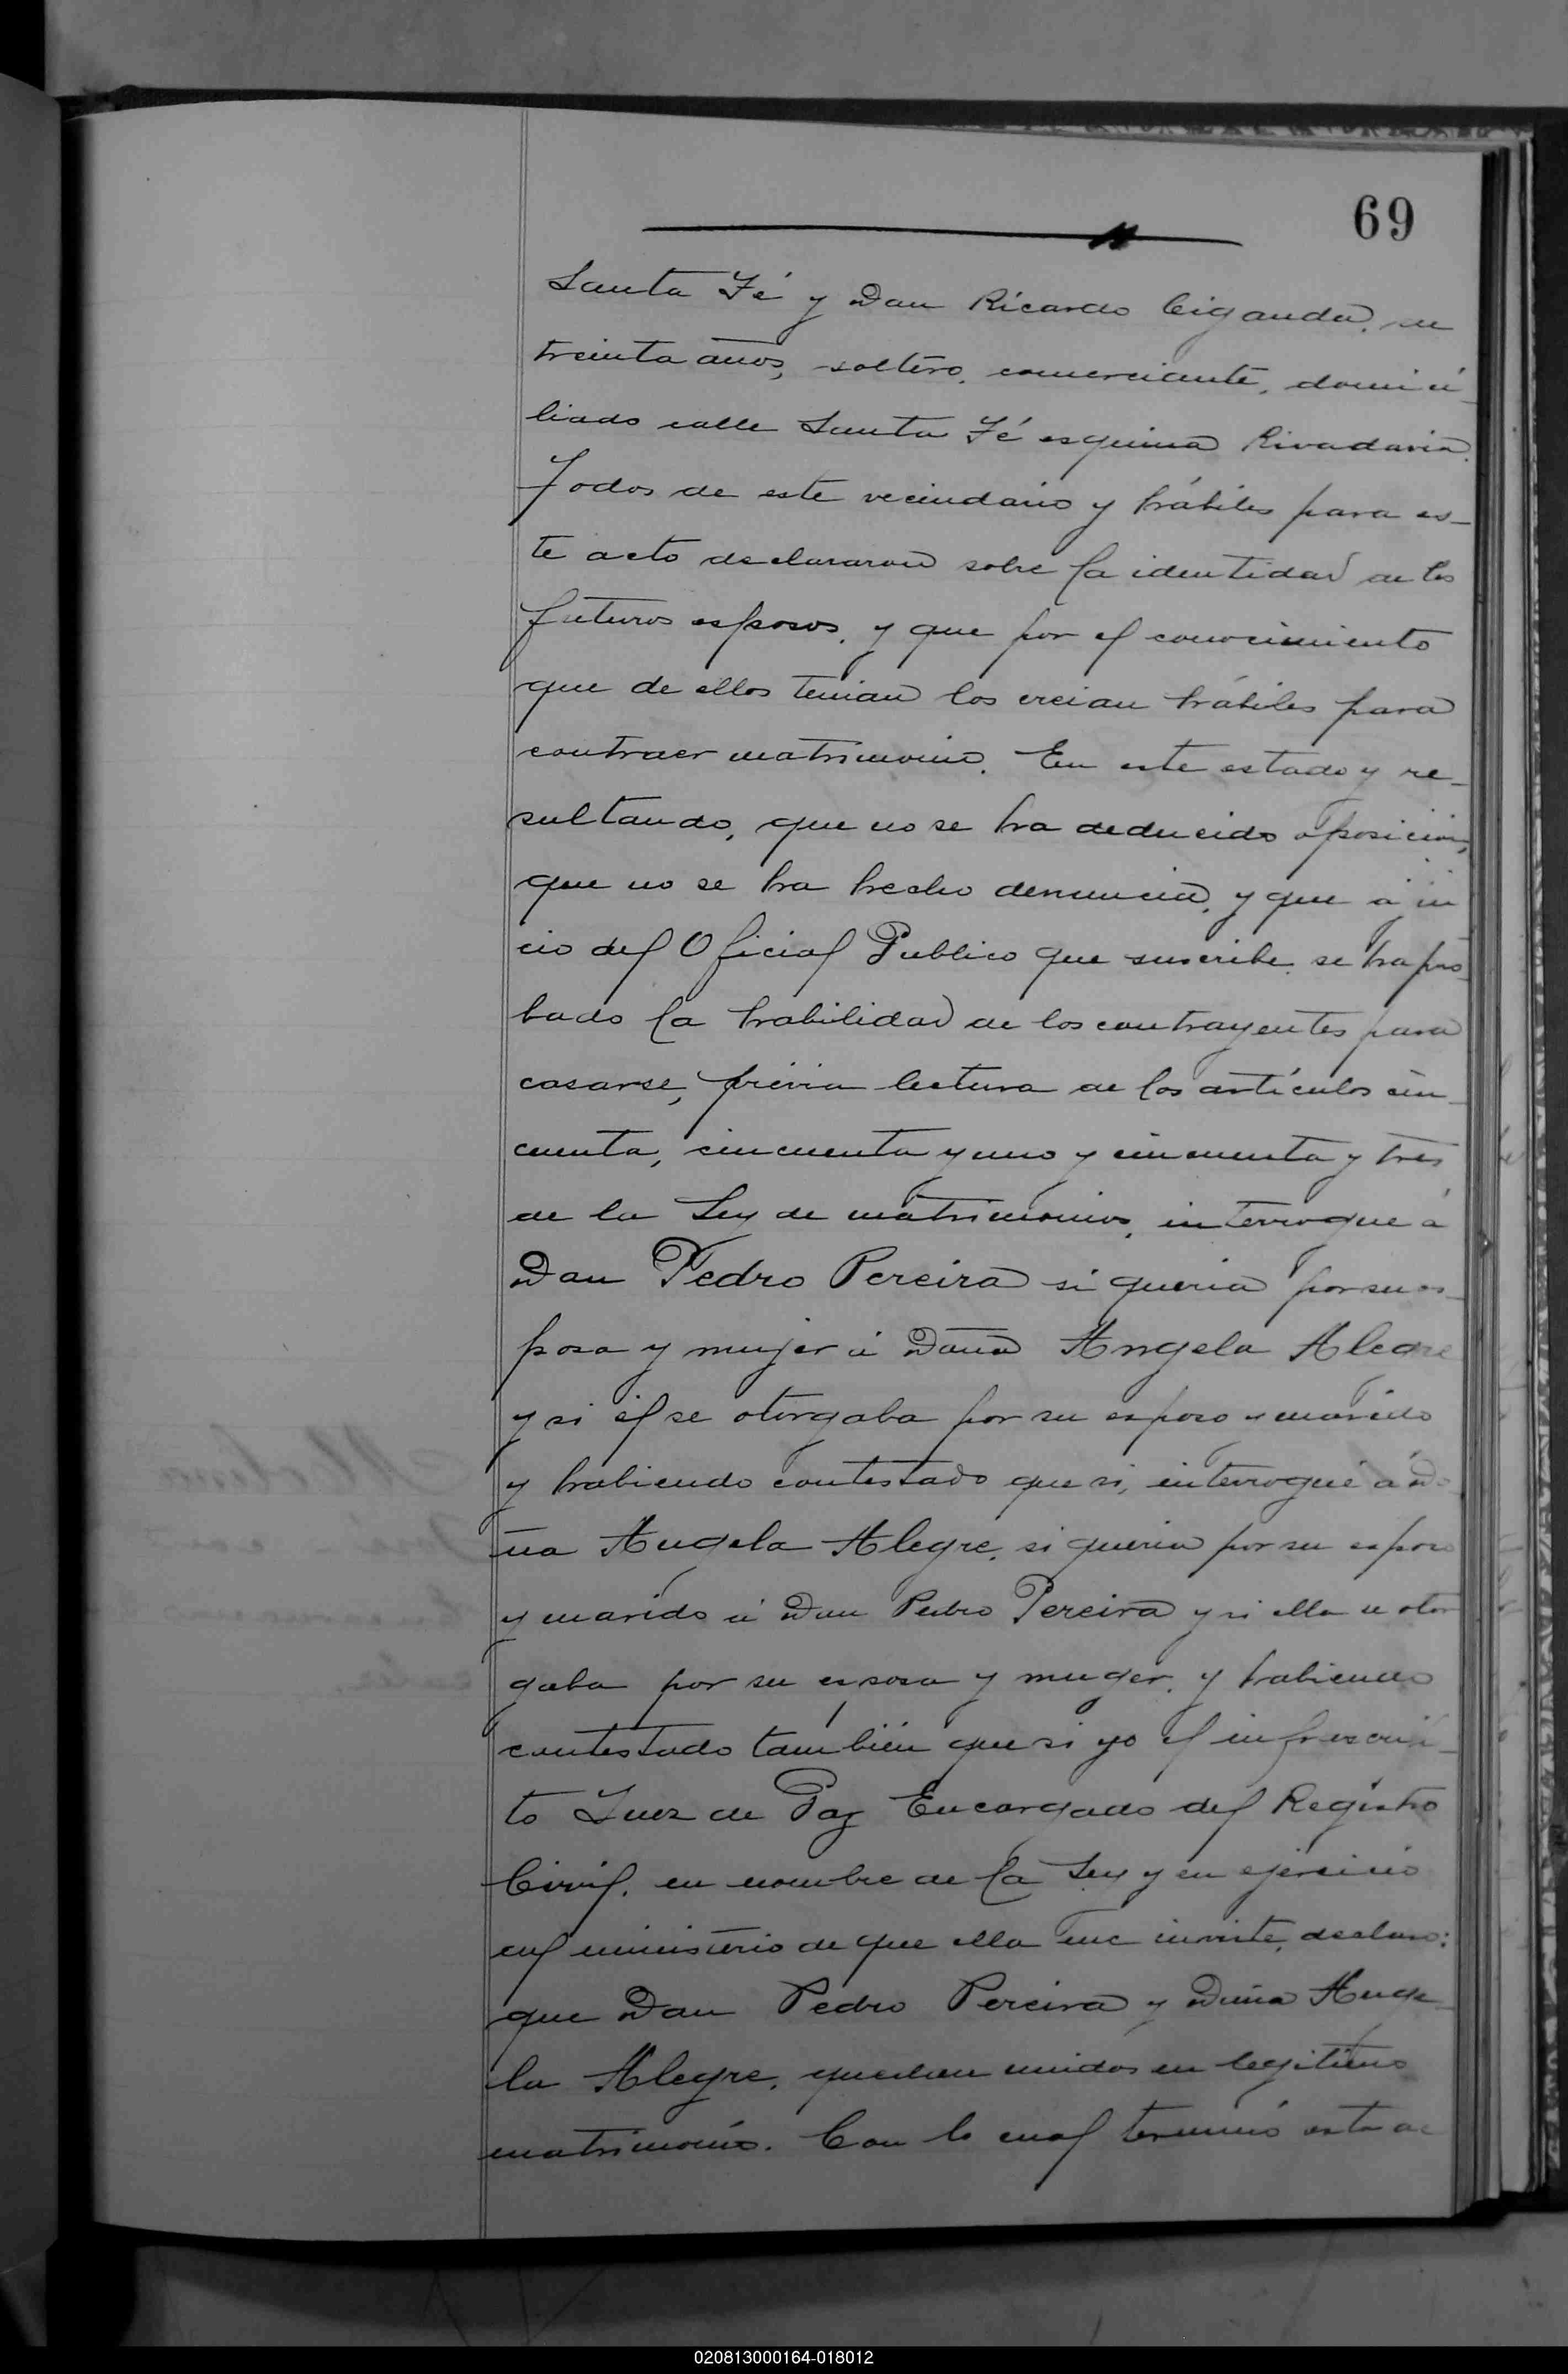 69
Santa Fé y Don Ricardo Ciganda, de
treinta años, soltero, comerciante, domici-
liado calle Santa Fé esquina Rivadavia.
Todos de este vecindario y hábiles para es-
te acto declararon sobre la identidad de los
futuros esposos, y que por el conocimiento
que de ellos tenian los creian hábiles para
contraer matrimonio. En este estado y re-
sultando, que no se ha deducido oposicion,
que no se ha hecho denuncia, y que á jui
cio del Oficial Publico que suscribe se ha pro
bado la habilidad de los contrayentes para
casarse, prévia lectura de los artículos cin-
cuenta, cincuenta y uno y cincuenta y tres
de la Ley de matrimonios, interrogue á
Don Pedro Pereira si queria por su es-
posa y mujer á Doña Angela Alegre
y si él se otorgaba por su esposo y marido
y habiendo contestado que si, interrogué á Do
ña Angela Alegre, si queria por su esposo
y marido á Don Pedro Pereira y si ella se otor
gaba por su esposa y muger, y habiendo
contestado también que si yo el infrascrip-
to Juez de Paz Encargado del Registro
Civil, en nombre de la Ley y en ejercicio
del ministerio de que ella me inviste, declaro:
que Don Pedro Pereira y Doña Ange-
la Alegre, quedan unidos en legitimo
matrimonio. Con lo cual terminó este ac
020813000164-018012